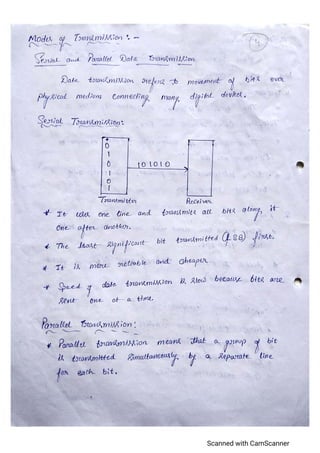 Modes of Transmission : -
Serial and Parallel Data Transmission
Data transmission refers to movement of bits over
physical medium connecting many digital devices.
Serial Transmission:
0
1
0
1
0
1
101010
Transmitter Receiver
* It uses one line and transmits all bits along it
one after another.
* The least significant bit transmitted (LSB) first.
* It is more reliable and cheaper
* Speed of data transmission is slow because bits are
sent one at a time.
Parallel Transmission:
* Parallel transmission means that a group of bit
is transmitted simultaneously by a separate line
for each bit.
Scanned with CamScanner